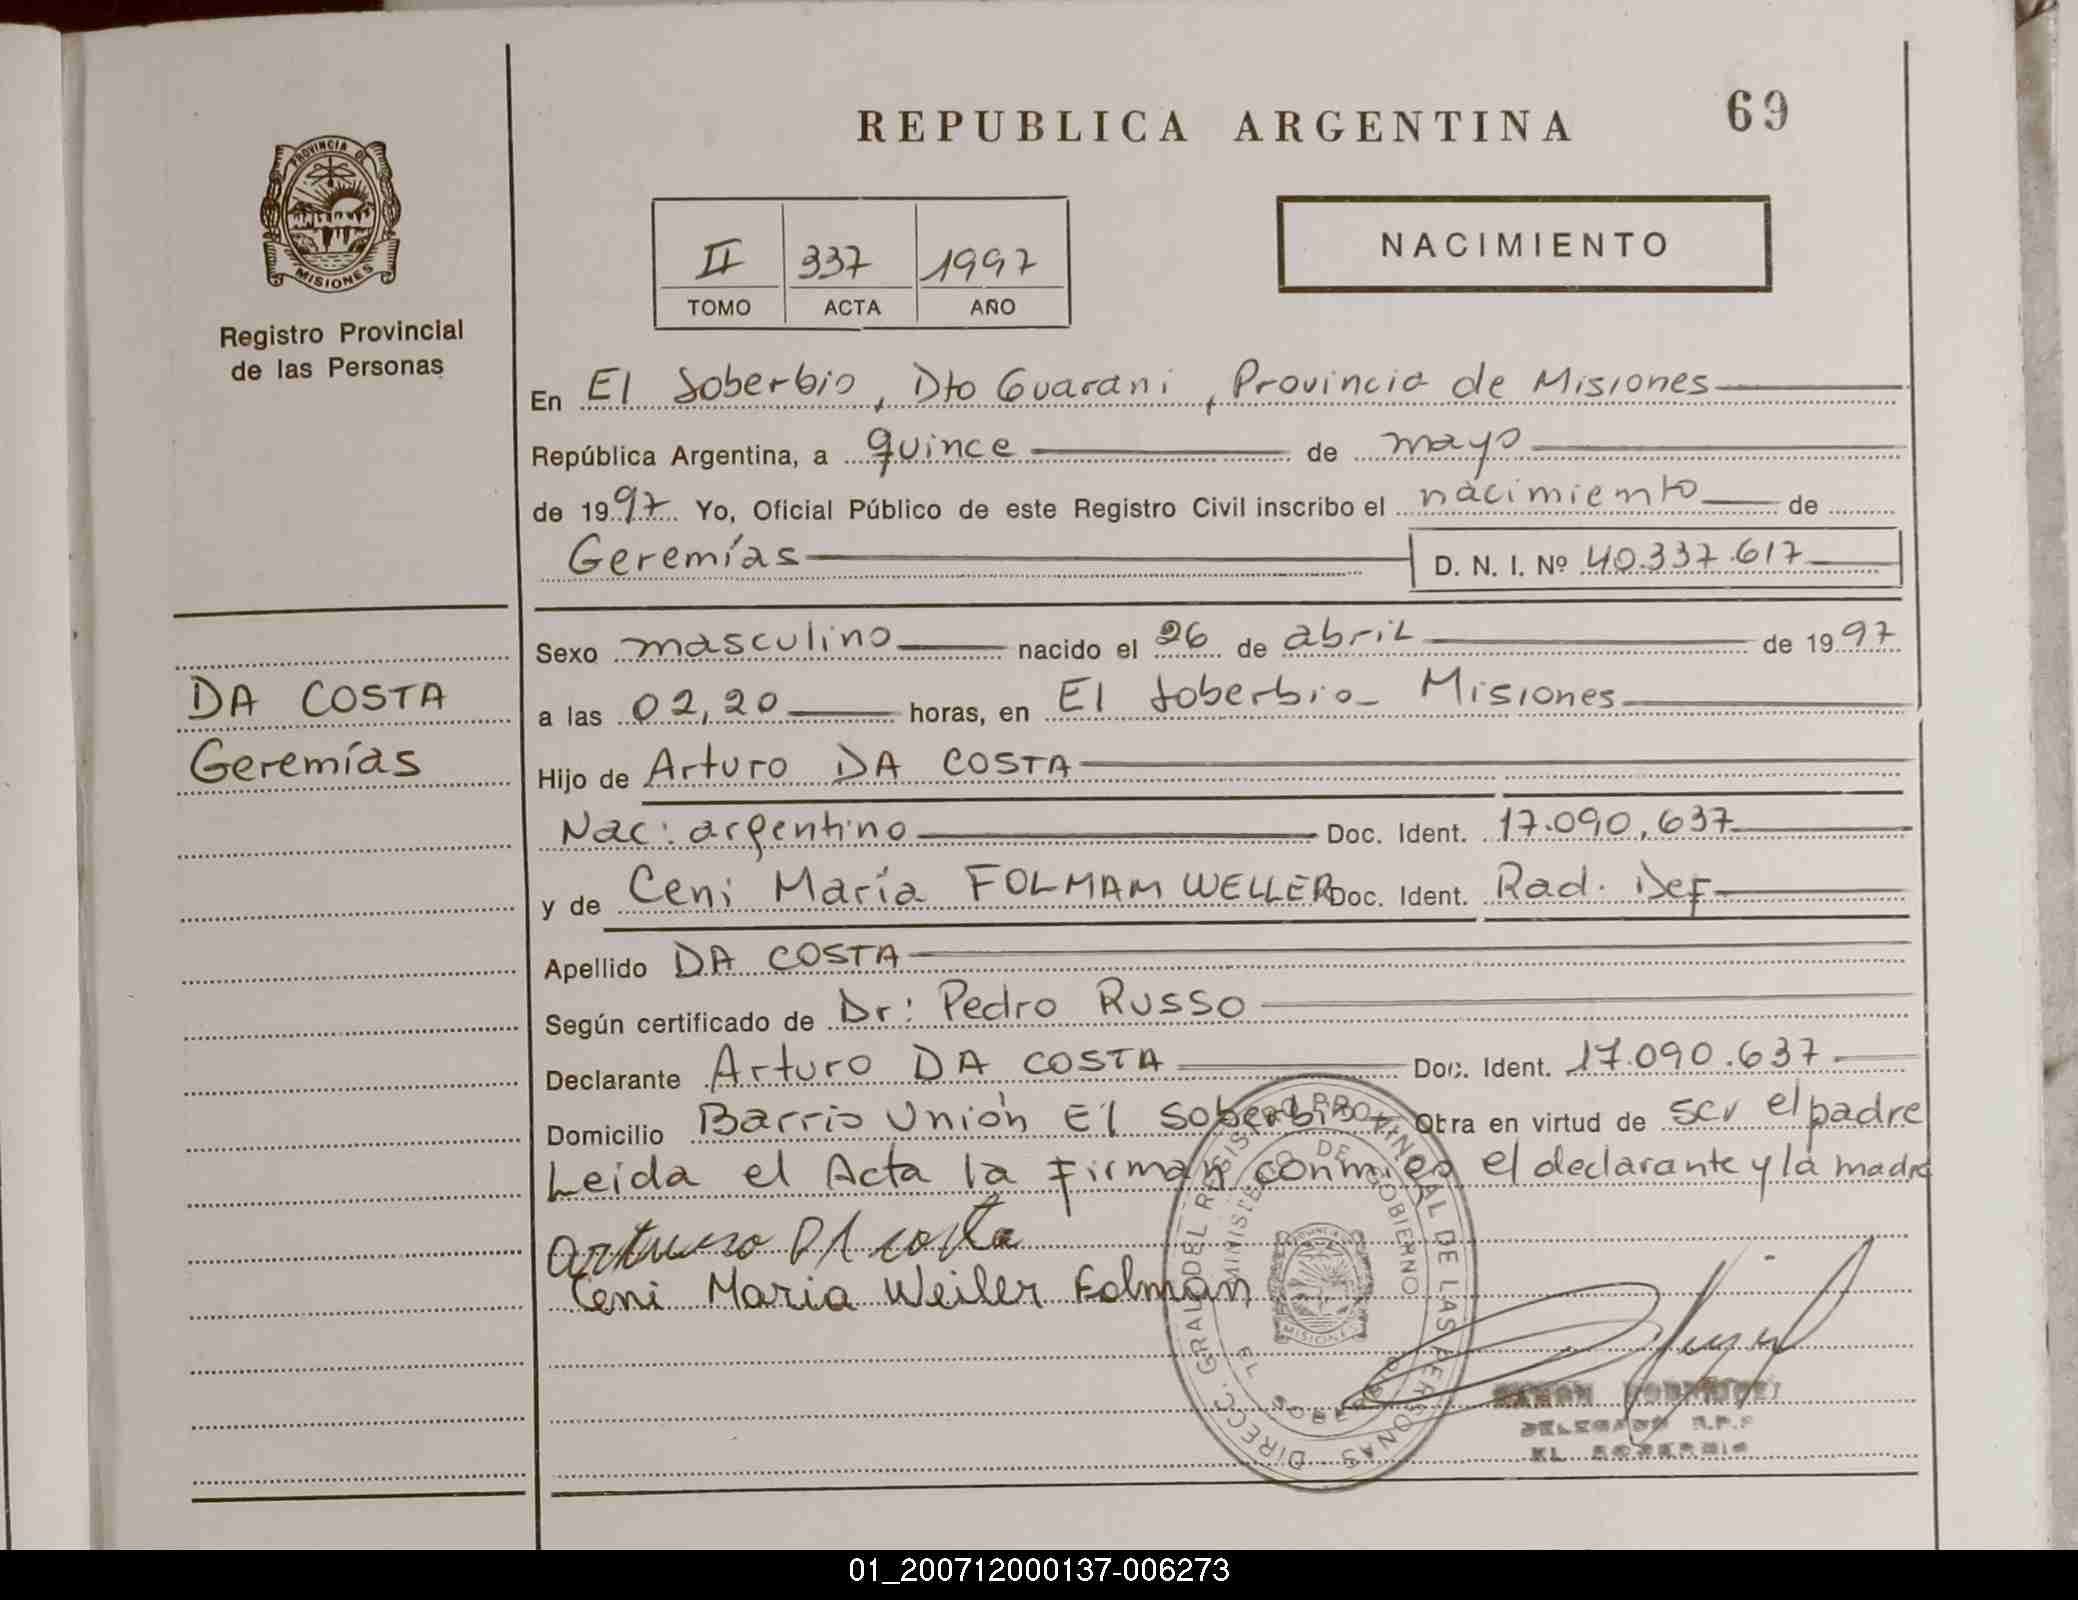 REPUBLICA ARGENTINA
69
PROVINCIA DE
MISIONES
Registro Provincial
de las Personas
II 337 1997
TOMO ACTA AÑO
NACIMIENTO
En El Soberbio, Dto Guarani, Provincia de Misiones
República Argentina, a quince de mayo
de 1997 Yo, Oficial Público de este Registro Civil inscribo el nacimiento de
Geremías D. N. I. Nº 40.337.617
DA COSTA
Geremías
Sexo masculino nacido el 26 de abril de 1997
a las 02,20 horas, en El Soberbio - Misiones
Hijo de Arturo DA COSTA
Nac: argentino Doc. Ident. 17.090.637
y de Ceni María FOLMAM WELLER Doc. Ident. Rad. Def
Apellido DA COSTA
Según certificado de Dr: Pedro Russo
Declarante Arturo DA COSTA Doc. Ident. 17.090.637
Domicilio Barrio Unión El Soberbio Obra en virtud de ser el padre
Leida el Acta la firman conmigo el declarante y la madre
arturo DA costa
Ceni Maria Weiler Folman
DIRECC. GRAL. DEL REGISTRO PROVINCIAL DE LAS PERSONAS
MINISTERIO DE GOBIERNO
MISIONES
EL SOBERBIO
RAMON RODRIGUEZ
DELEGADO R.P.P
EL SOBERBIO
01_200712000137-006273